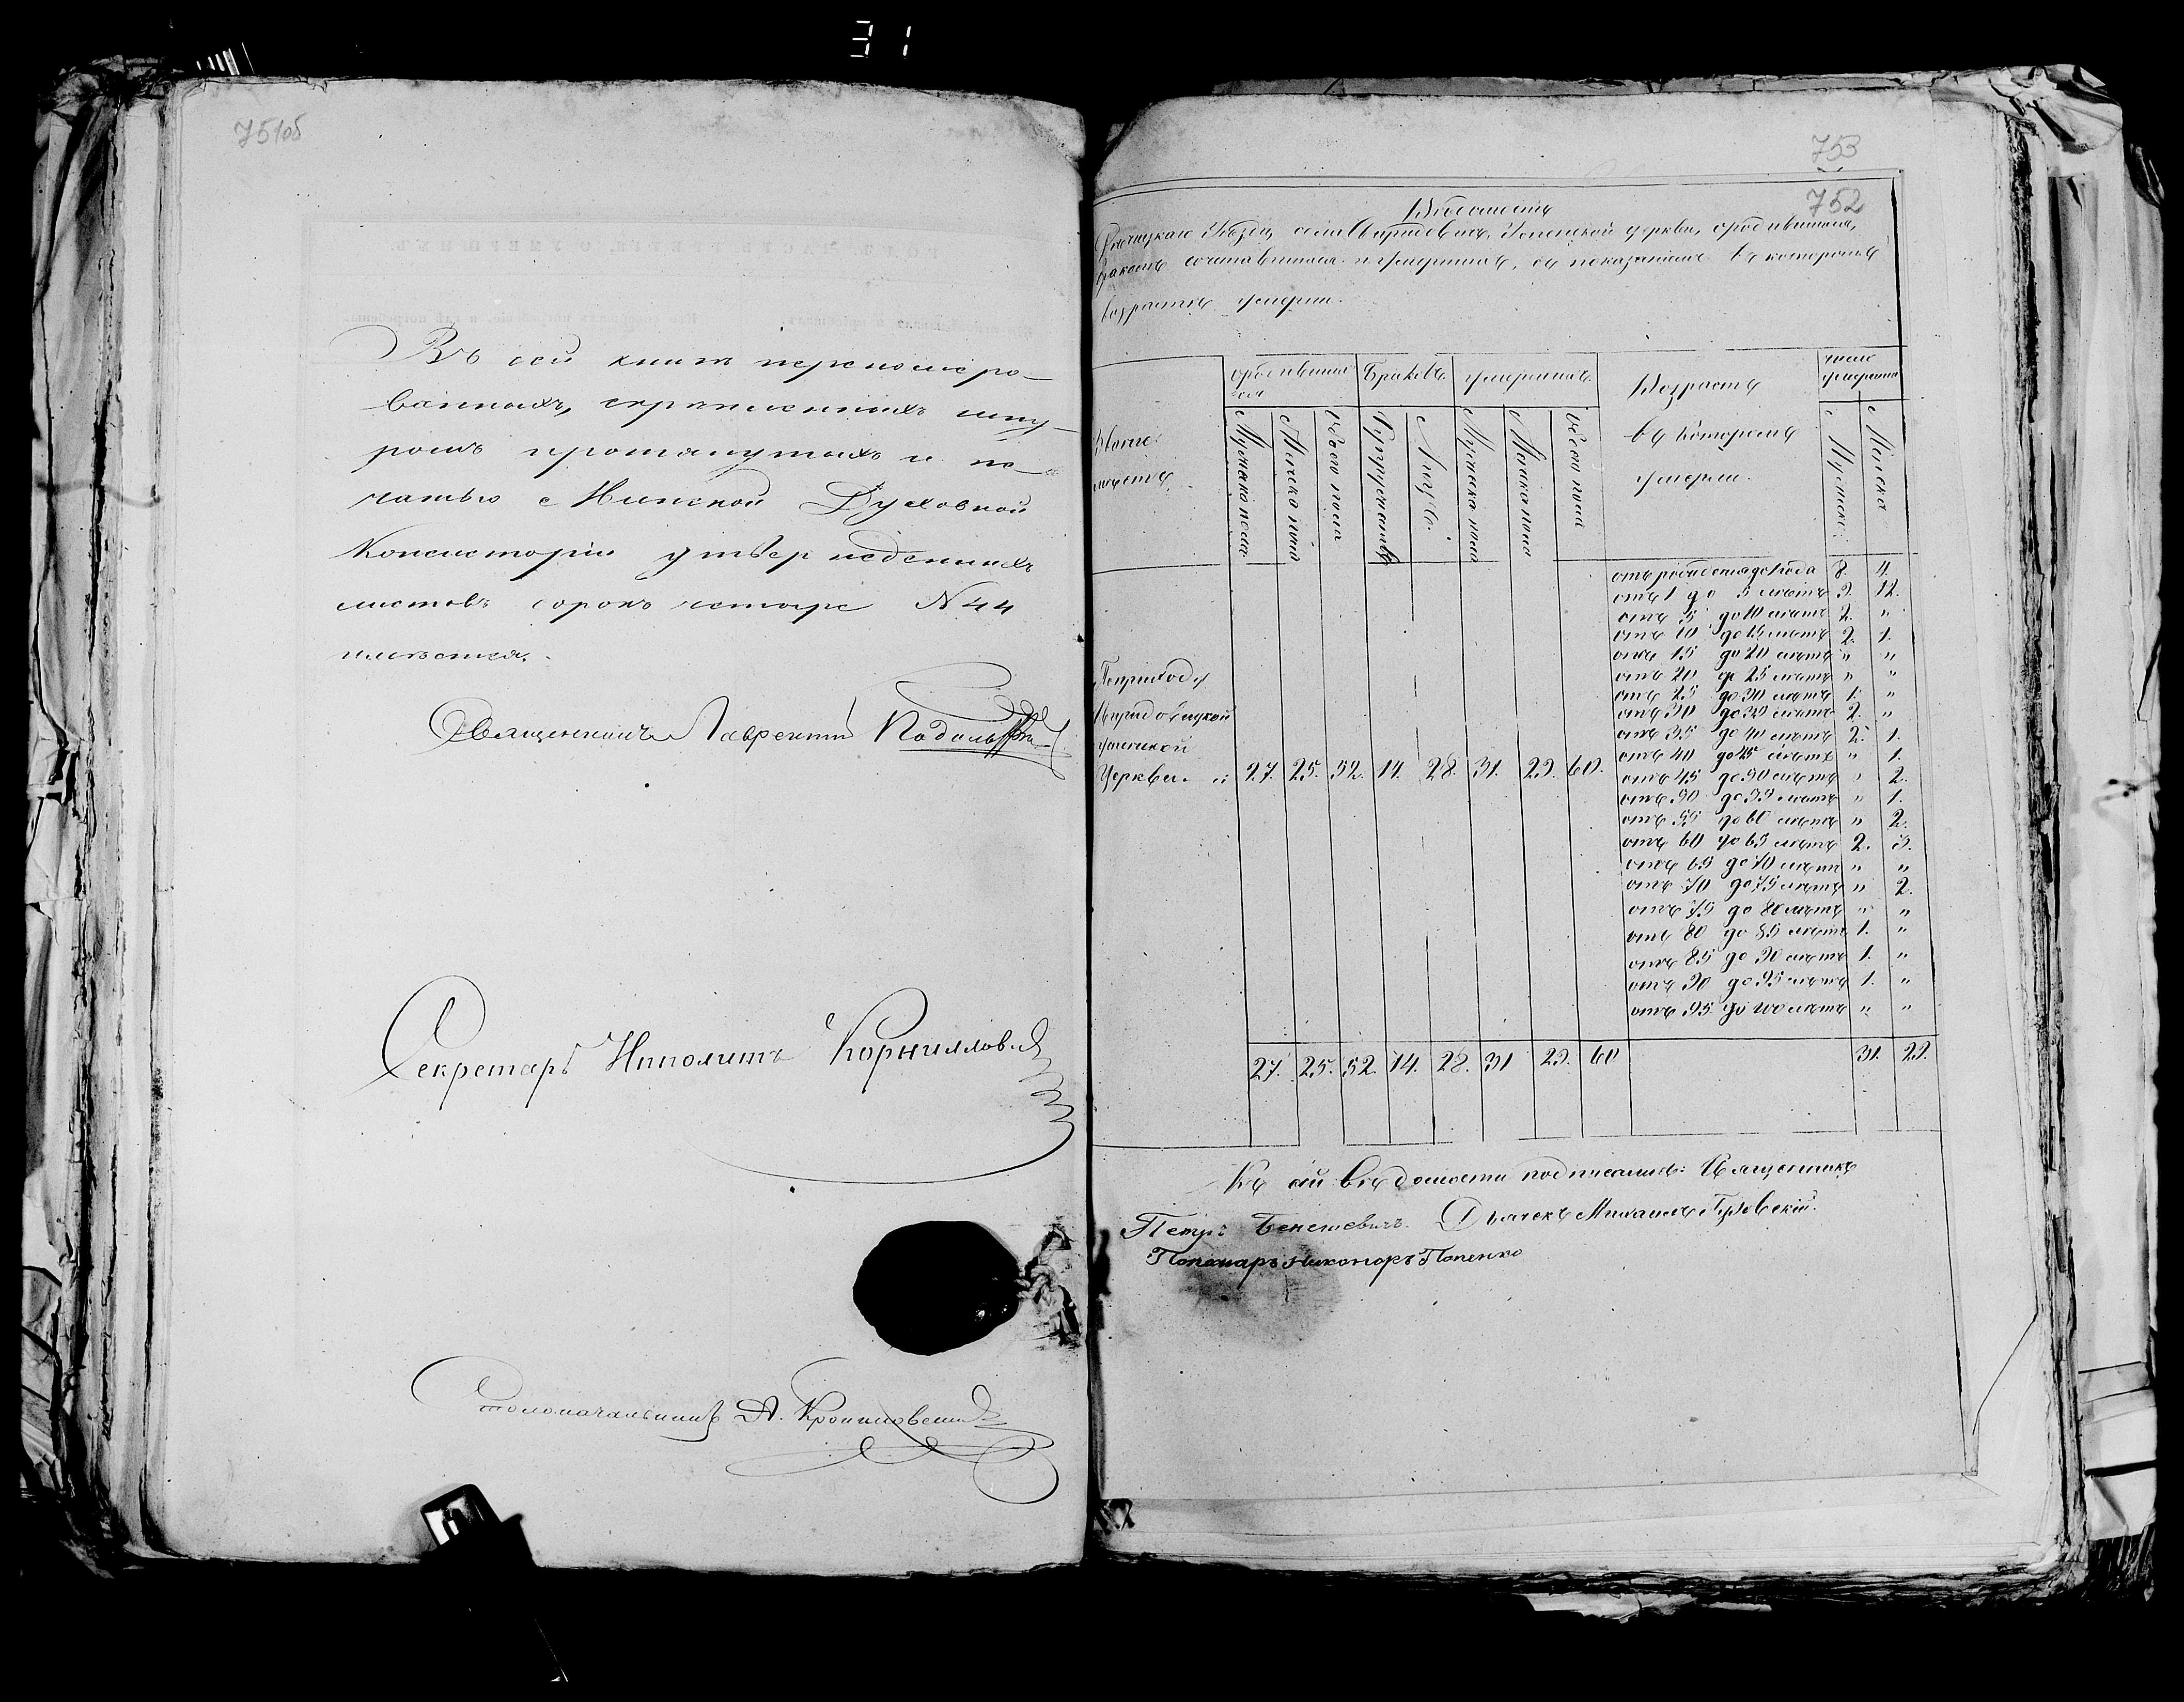 31
751об
Въ сей книгѣ перенумеро-
ванныхъ, скрѣпленныхъ шну-
ромъ протянутыхъ и пе-
чатью Минской Духовной
Консисторіи утвержденныхъ
листовъ сорокъ четыре N 44
имѣется.
Священникъ Лаврентій
Секретарь Иполитъ Корниловъ
Столоначальникъ А.
753
752
Вѣдомость
Рѣчицкаго Уѣзда, села Свиридовичъ, Успенской церкви, о родившихся,
бракомъ сочетавшихся и умершихъ, съ показаніемъ въ которомъ
возрастѣ умерли.
Званіе мѣстъ.
о родившихся
Браковъ
умершихъ
Возрастъ въ которомъ умерли.
число умершихъ
Мужска пола
Женска пола
обоего пола
Супружествъ
Лицъ
Мужска пола
Женска пола
обоего пола
Мужска
Женска
По приходу
Свиридовицкой
Успенской
Церкви 27. 25. 52. 14. 28. 31. 29. 60.
отъ рожденія до 1 года 8. 4.
отъ 1 до 5 лѣтъ 9. 12.
отъ 5 до 10 лѣтъ 2. "
отъ 10 до 15 лѣтъ 2. 1.
отъ 15 до 20 лѣтъ " "
отъ 20 до 25 лѣтъ " "
отъ 25 до 30 лѣтъ 1. "
отъ 30 до 35 лѣтъ 2. "
отъ 35 до 40 лѣтъ 2. 1.
отъ 40 до 45 лѣтъ " 1.
отъ 45 до 50 лѣтъ " 2.
отъ 50 до 55 лѣтъ " 1.
отъ 55 до 60 лѣтъ " 2.
отъ 60 до 65 лѣтъ 2. 3.
отъ 65 до 70 лѣтъ " "
отъ 70 до 75 лѣтъ " 2.
отъ 75 до 80 лѣтъ " "
отъ 80 до 85 лѣтъ 1. "
отъ 85 до 90 лѣтъ 1. "
отъ 90 до 95 лѣтъ 1. "
отъ 95 до 100 лѣтъ " "
27. 25. 52. 14. 28. 31 29. 60 31. 29.
Къ сей вѣдомости подписались: Священникъ
Петръ Дьячекъ Михаилъ
Пономарь Никоноръ Попенко